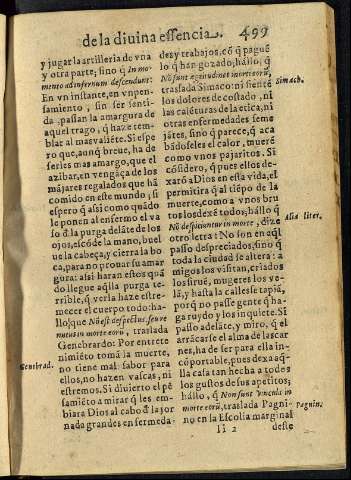 de la diuina essencia. 499
y jugar la artilleria de vna
y otra parte; sino q̃ In mo-
mento ad infernum descendunt:
En vn instante, en vn pen-
samiento, sin ser senti-
da, passan la amargura de
aquel trago, q̃ haze tem-
blar al mas valiẽte. Si espe-
ro que, aunq̃ breue, ha de
serles mas amargo, que el
azibar, en vengãça de los
mãjares regalados que hã
comido en este mundo; si
espero q̃ assi como quãdo
le ponen al enfermo el va
so d̃ la purga delãte de los
ojos, escõde la mano, buel
ue la cabeça, y cierra la bo
ca, para no prouar su amar
gura: assi haran estos quã
do llegue aq̃lla purga te-
rrible, q̃ verla haze estre-
mecer el cuerpo todo: ha-
llo, que Nõ est despectus, seu re
mutus in morte eorũ, traslada
Genebrardo: Por entrete
nimiẽto tomã la muerte,
no tiene mal sabor para
ellos, no hazen vascas, ni
estremos. Si diuierto el pẽ
samiẽto a mirar q̃ les em-
biara Dios al cabo d̃ la jor
nada grandes enfermeda-
Genebrad.
des y trabajos, cõ q̃ paguẽ
lo q̃ han gozado; hallo, q̃
Nõ sunt aegritudines morti eorũ,
traslada Simaco: ni sientẽ
los dolores de costado, ni
las calẽturas de la etica, ni
otras enfermedades seme
jãtes, sino q̃ parece, q̃ aca
bãdoseles el calor, muerẽ
como vnos pajaritos. Si
cõsidero, q̃ pues ellos de-
xarõ a Dios en esta vida, el
permitira q̃ al tiẽpo de la
muerte, como a vnos bru
tos los dexẽ todos; hallo q̃
Nõ despiciuntur in morte, dize
otra letra: No son en aq̃l
passo despreciados, sino q̃
toda la ciudad se altera: a
migos los visitan, criados
los siruẽ, mugeres los ve-
lã, y hasta la calle se tapia,
porq̃ no passe gente q̃ ha-
ga ruydo y los inquiete. Si
passo adelãte, y miro, q̃ el
arrãcarse el alma de las car
nes, ha de ser para ella in-
cõportable, pues dexa aq̃-
lla casa tan hecha a todos
los gustos de sus apetitos;
hallo, q̃ Non sunt vincula in
morte eorũ, traslada Pagni-
no en la Escolia marginal
Simach.
Alia liter.
Pagnin.
Ii 2 deste